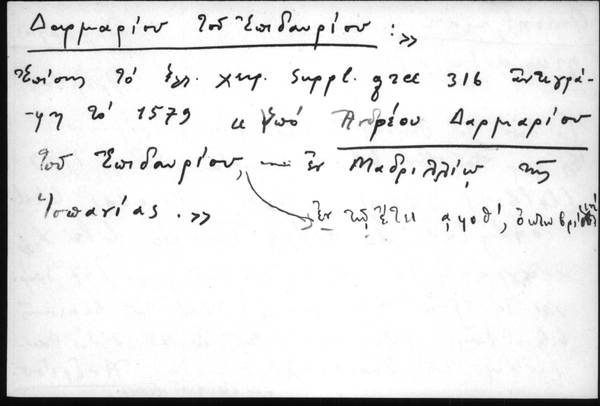 Δαρμαρίου τοῦ Ἐπιδαυρίου :»
Ἐπίσης τό ἑλλ. χειρ. Suppl. grec 316 ἀντεγρά-
-φη τό 1579 « Ὑπό Ἀνδρέου Δαρμαρίου
τοῦ Ἐπιδαυρίου, — ἐν Μαδριλλίῳ τῆς
Ἱσπανίας .»
ἐν τῷ ἔτει αφοθ', ὀκτωβρίῳ